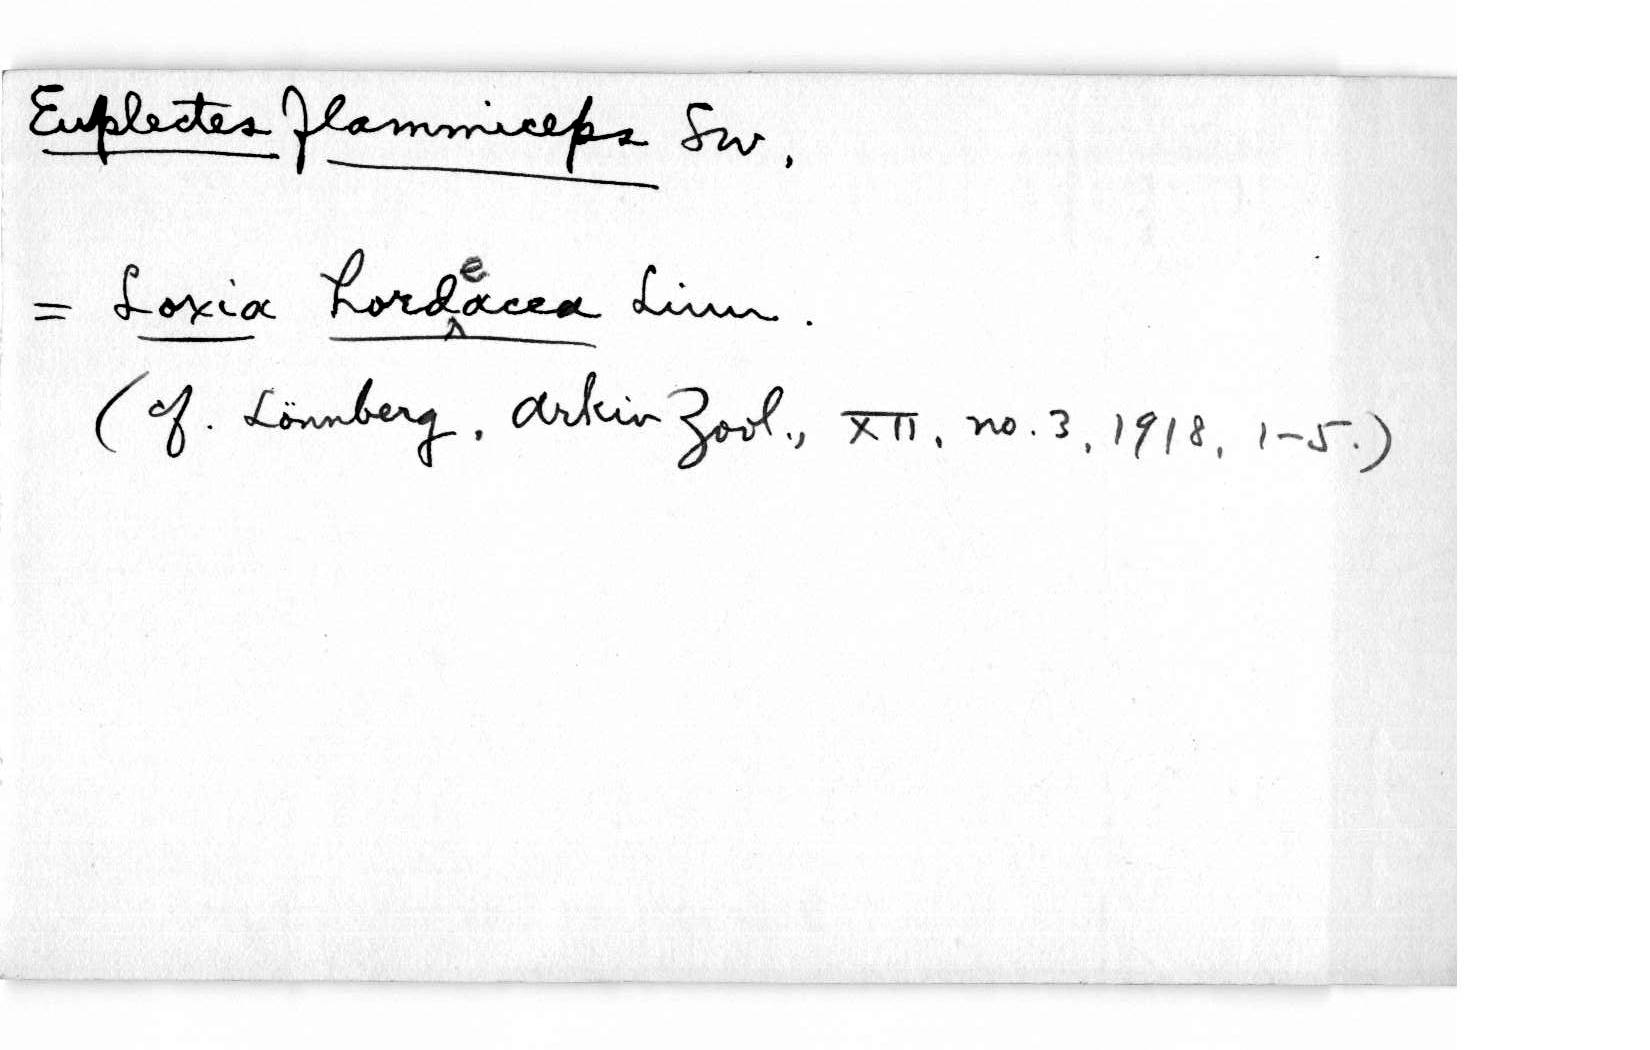 Euplectes flammiceps Sw.
= Loxia hordeacea Linn.
(cf. Lönnberg, Arkiv Zool., XII, no. 3, 1918, 1-5.)